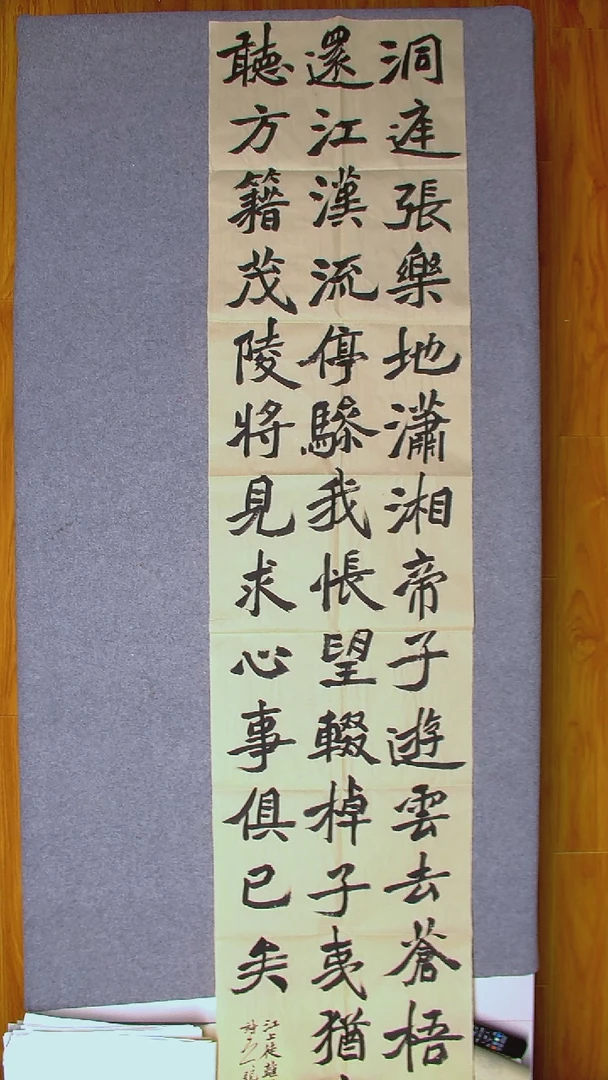 洞庭張樂地瀟湘帝子遊雲去蒼梧
還江漢流停驂我悵望輟棹子夷猶
聽方籍茂陵將見求心事俱已矣
江上徒離
詩